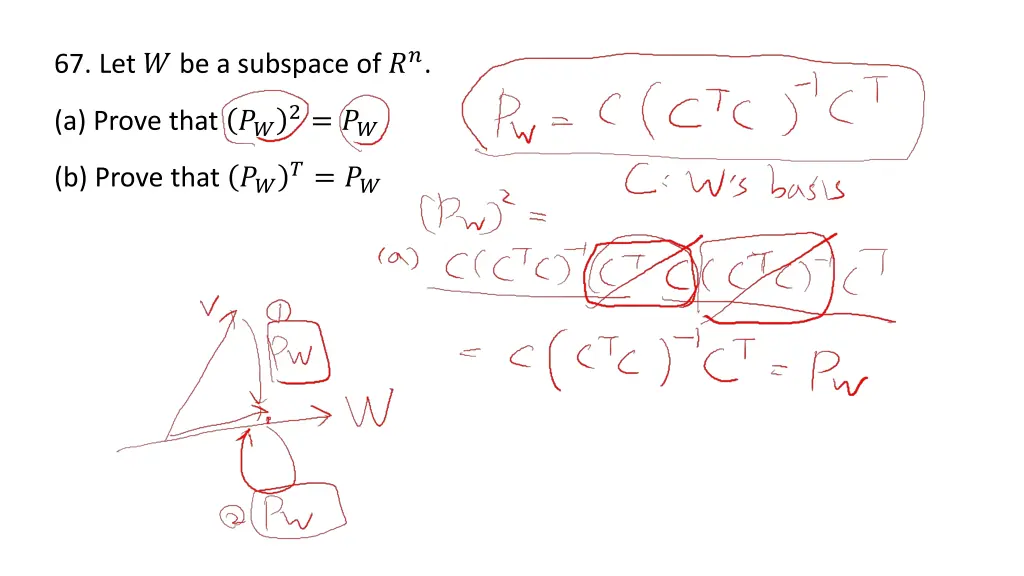 67. Let 𝑊 be a subspace of 𝑅ⁿ.
(a) Prove that (𝑃_𝑊)² = 𝑃_𝑊
(b) Prove that (𝑃_𝑊)ᵀ = 𝑃_𝑊
P_W = C(CᵀC)⁻¹Cᵀ
C: W's basis
(P_W)² =
(a) C(CᵀC)⁻¹(CᵀC)(CᵀC)⁻¹Cᵀ
= C(CᵀC)⁻¹Cᵀ = P_W
V
①
P_W
W
② P_W